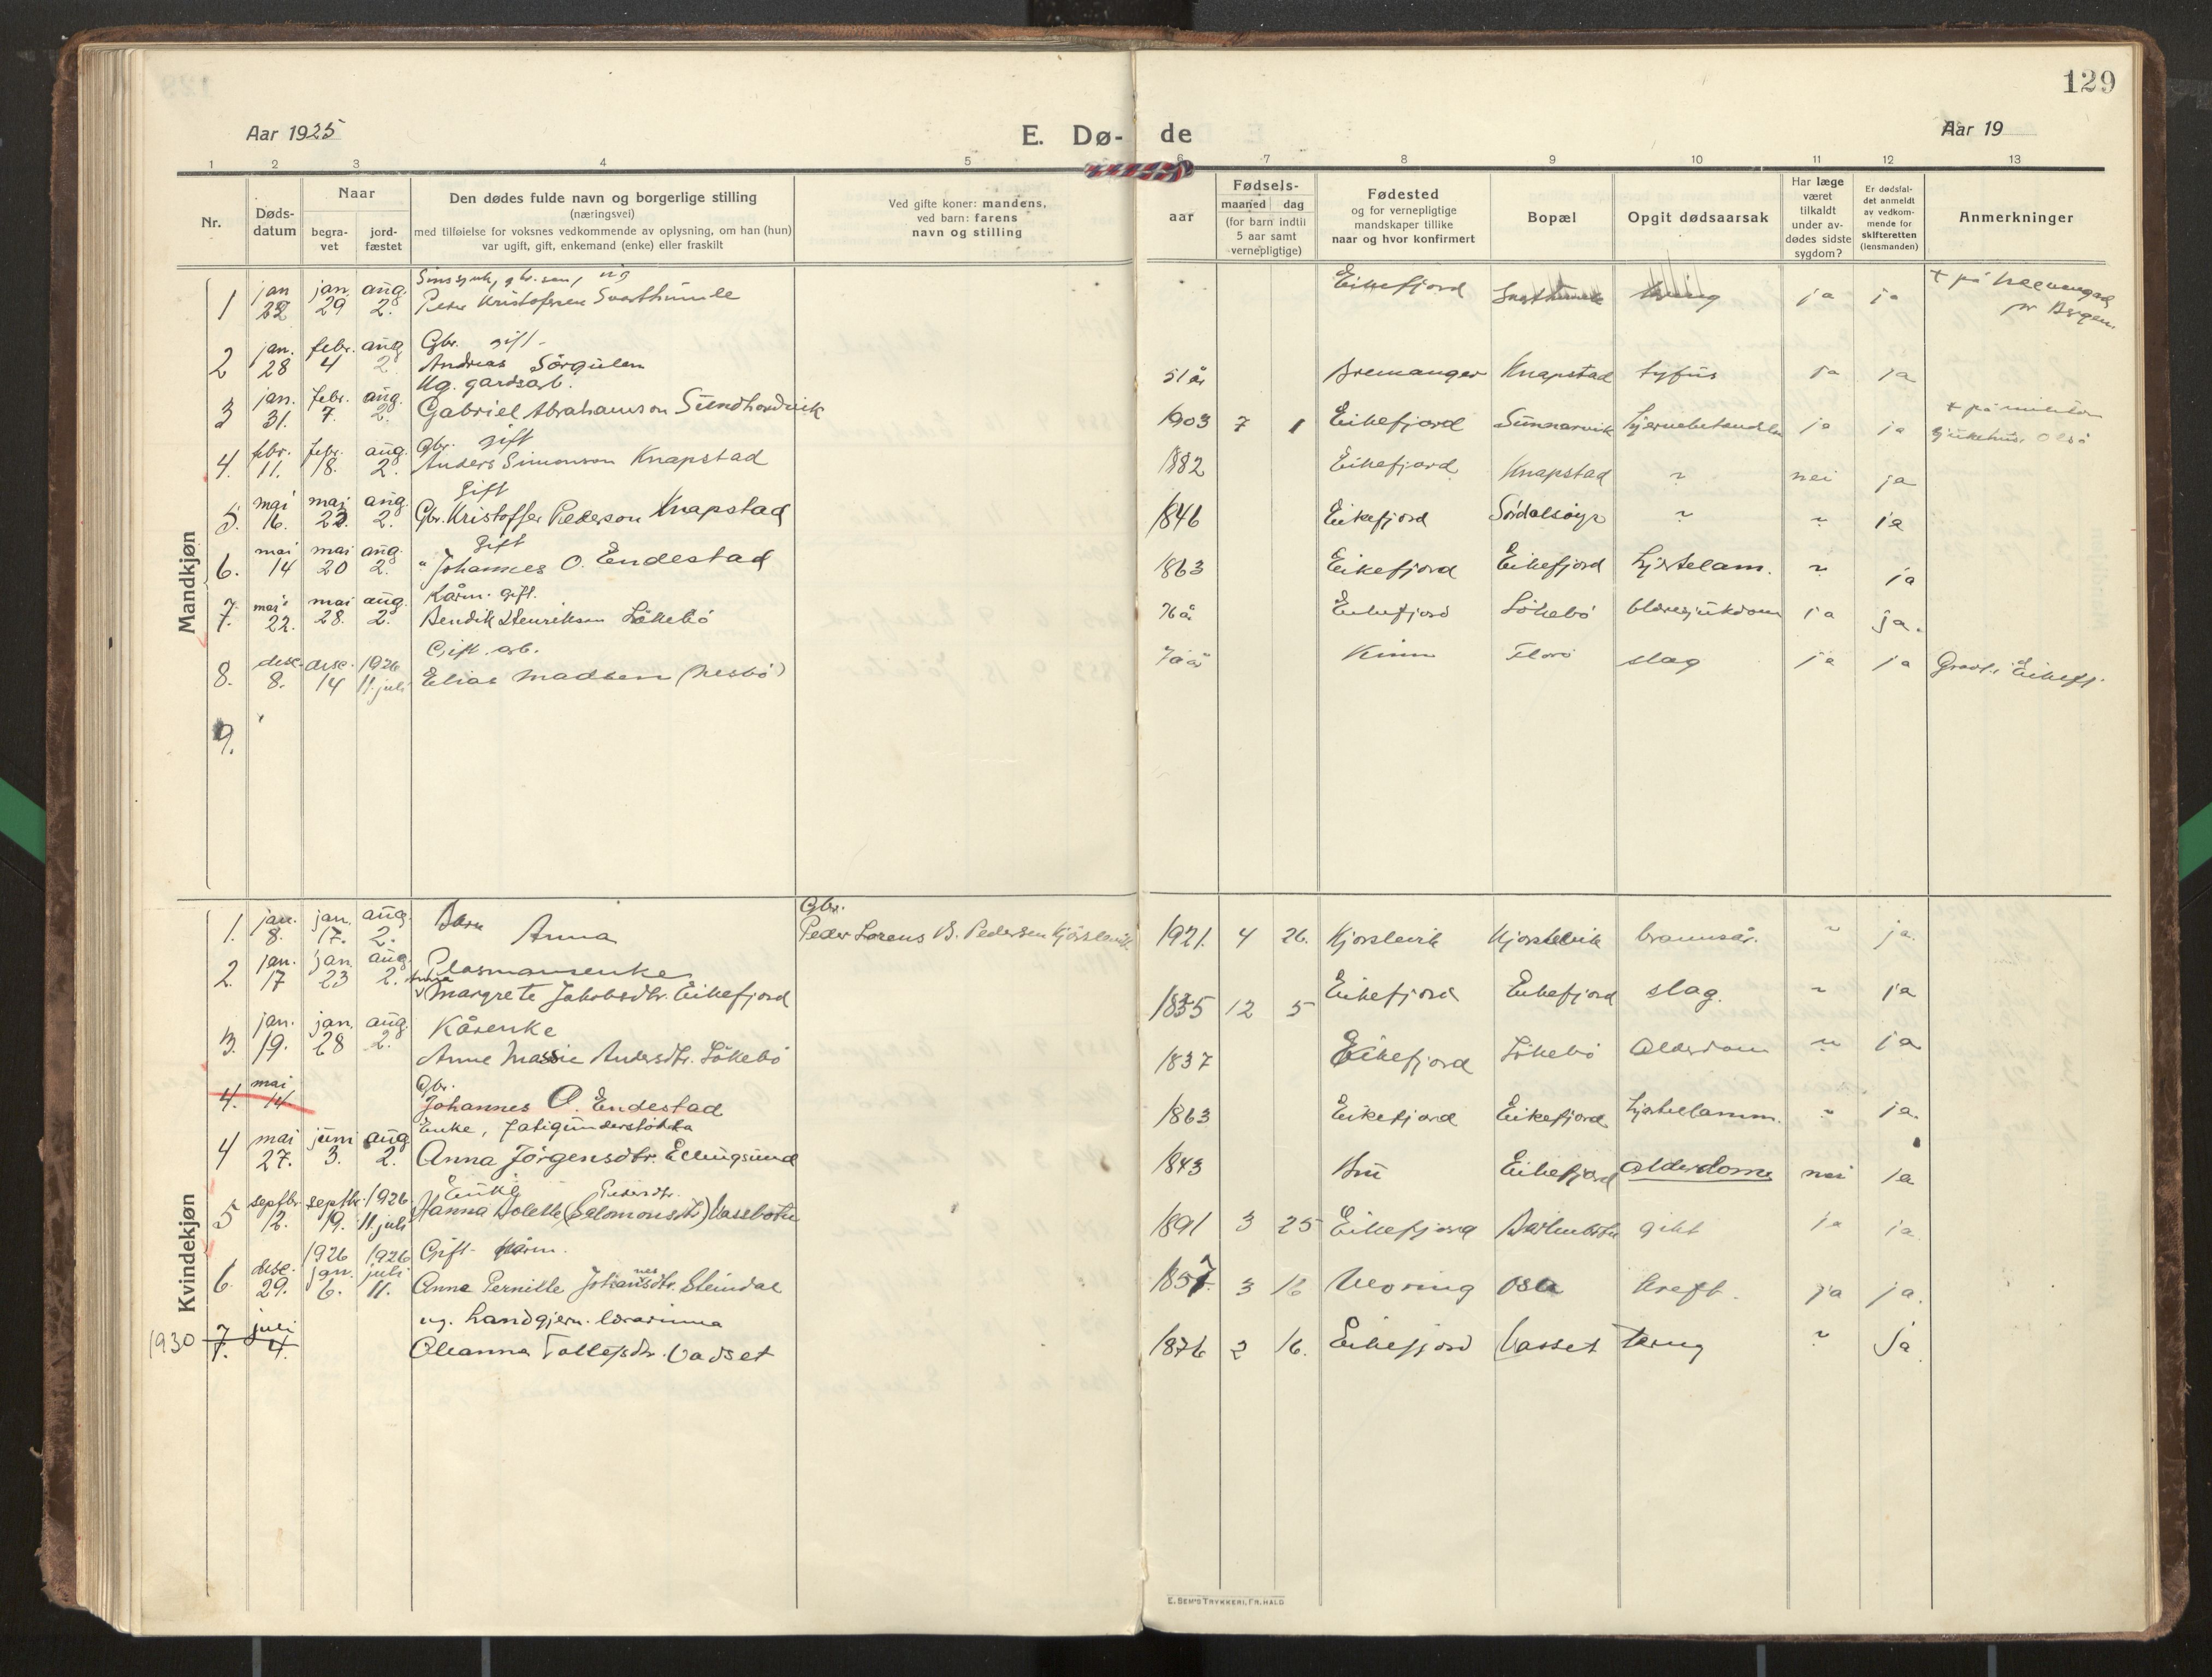 129
Aar 1925
E. Dø- de
Aar 19
1 2 3 4 5 6 7 8 9 10 11 12 13
Nr.
Døds-
datum
Naar
begra-
vet
jord-
fæstet
Den dødes fulde navn og borgerlige stilling
(næringsvei)
med tilføielse for voksnes vedkommende av oplysning, om han (hun)
var ugift, gift, enkemand (enke) eller fraskilt
Ved gifte koner: mandens,
ved barn: farens
navn og stilling
aar
Fødsels-
maaned dag
(for barn indtil
5 aar samt
vernepligtige)
Fødested
og for vernepligtige
mandskaper tillike
naar og hvor konfirmert
Bopæl
Opgit dødsaarsak
Har læge
været
tilkaldt
under av-
dødes sidste
sygdom?
Er dødsfal-
det anmeldt
av vedkom-
mende for
skifteretten
(lensmanden)
Anmerkninger
Mandkjøn
ug
jan jan. aug. Eikefjord
1 22 29 2. Peder Kristoffersen Svarthumle ja ja
+ på
pr Bergen.
jan. febr. aug Gbr. gift-
2 28 4 2. Andreas Sørgulen 51 år Bremanger Knapstad tyfus ja ja
jan. febr. aug. Ug. gardsarb.
3 31. 7. 2. Gabriel Abrahamson Sundhordvik 1903 7 1 Eikefjord Sunnarvik ja ja
+ på
sjukehus.
febr. febr. aug. Gbr. gift
4. 11. 18. 2. Anders Simonson Knapstad 1882 Eikefjord Knapstad ~ nei ja
mai mai aug. gift
5. 16. 23. 2. Gbr. Kristoffer Pederson Knapstad 1846 Eikefjord ~ ~ ja
mai mai aug. gift
6. 14 20 2. " Johannes O. Endestad 1863 Eikefjord Eikefjord hjertelam. ~ ja
mai mai aug. Kårm. gift.
7. 22. 28. 2. Bendik Henrikson Løkebø 76 år Eikefjord Løkebø blæresjukdom ja ja.
desc. desc. 1926 Gift. arb.
8. 8. 14 11. juli Elias Madsen (Nesbø) Kinn Florø slag ja ja Gravl. i Eikefj.
9.
Kvindekjøn
jan. jan. aug. Barn Gbr.
1. 8. 17. 2. Anna Peder Lorens B. Pedersen Kjørslevik 1921. 4 26. Kjørslevik Kjørslevik brannsår. ~ ja.
jan. jan. aug.
2. 17 23 2. Margrete Jakobsdtr. Eikefjord 1835 12 5 Eikefjord Eikefjord slag. ~ ja
jan. jan. aug. Kårenke
3. 19. 28 2. Anne Andersdtr. Løkebø 1837 Eikefjord Løkebø Alderdom ~ ja
mai Gbr.
4. 14. Johannes O. Endestad 1863 Eikefjord Eikefjord hjertelamm. ~ ja.
Enke, fatigunderstøtta
mai juni aug
4 27. 3. 2. Anna Jørgensdtr. Ellingsund 1843 Eikefjord Alderdom nei ja
septbr septbr. 1926. Enke Pedersdtr.
5 12. 19. 11 juli Hanna (Salomonsdtr) Vassbotn 1891 3 25 Eikefjord gikt ja ja
1926 1926 Gift- kårm.
desc. jan. juli
6. 29. 6. 11. Anna Pernille Johannesdtr. Steindal 1857. 3 16 Osa kreft. ja ja.
juli ug. handgjern. lærarinna
1930 7. 4. Oleanna Tollefsdtr. Vasset 1876 2 16. Eikefjord Vasset Tæring ~ ja.
E. SEM'S TRYKKERI, FR.HALD